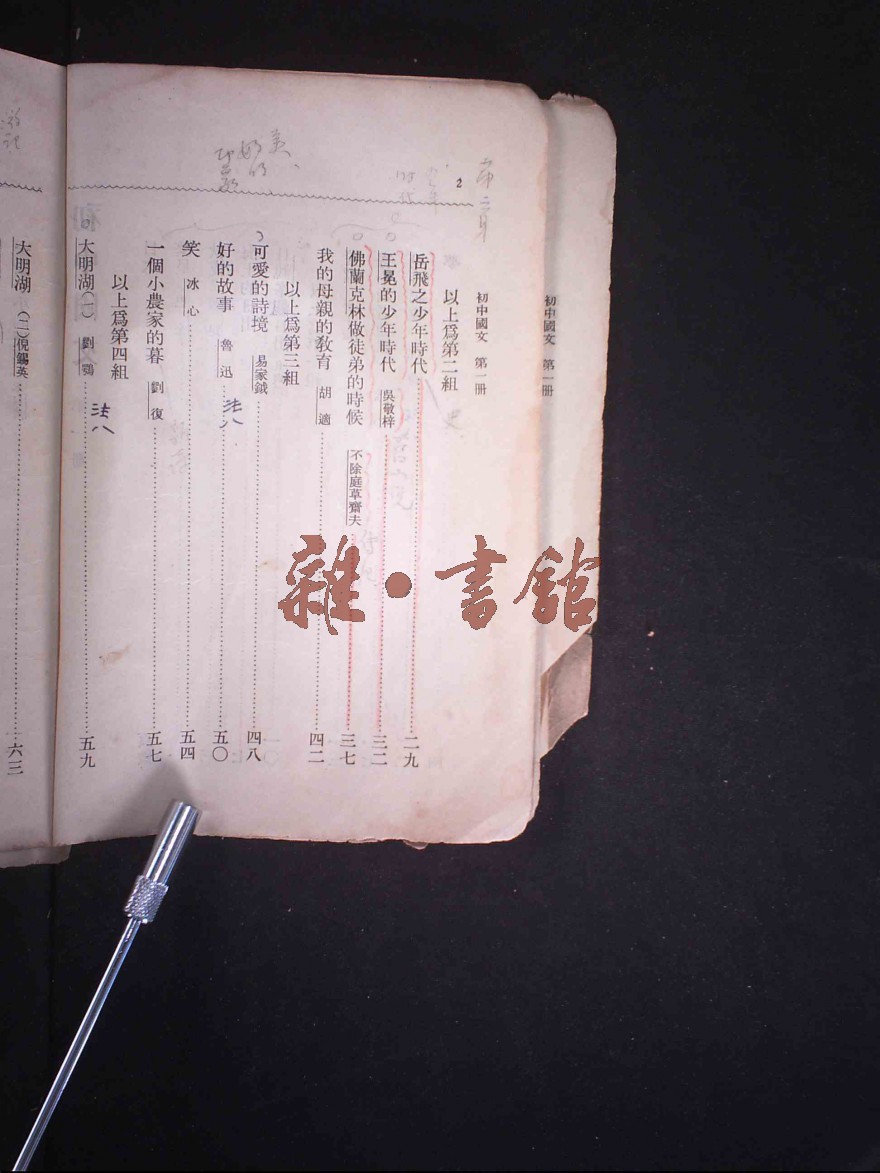 2
初中國文 第一冊
初中國文 第一冊
以上爲第二組
岳飛之少年時代 二九
王冕的少年時代 吳敬梓 三二
佛蘭克林做徒弟的時候 不除庭草齋夫 三七
我的母親的敎育 胡適 四二
以上爲第三組
可愛的詩境 易家鉞 四八
好的故事 魯迅 五〇
笑 冰心 五四
一個小農家的暮 劉復 五七
以上爲第四組
大明湖(一) 劉鶚 五九
大明湖(二) 倪錫英 六三
法八
法八
史
雜·書館